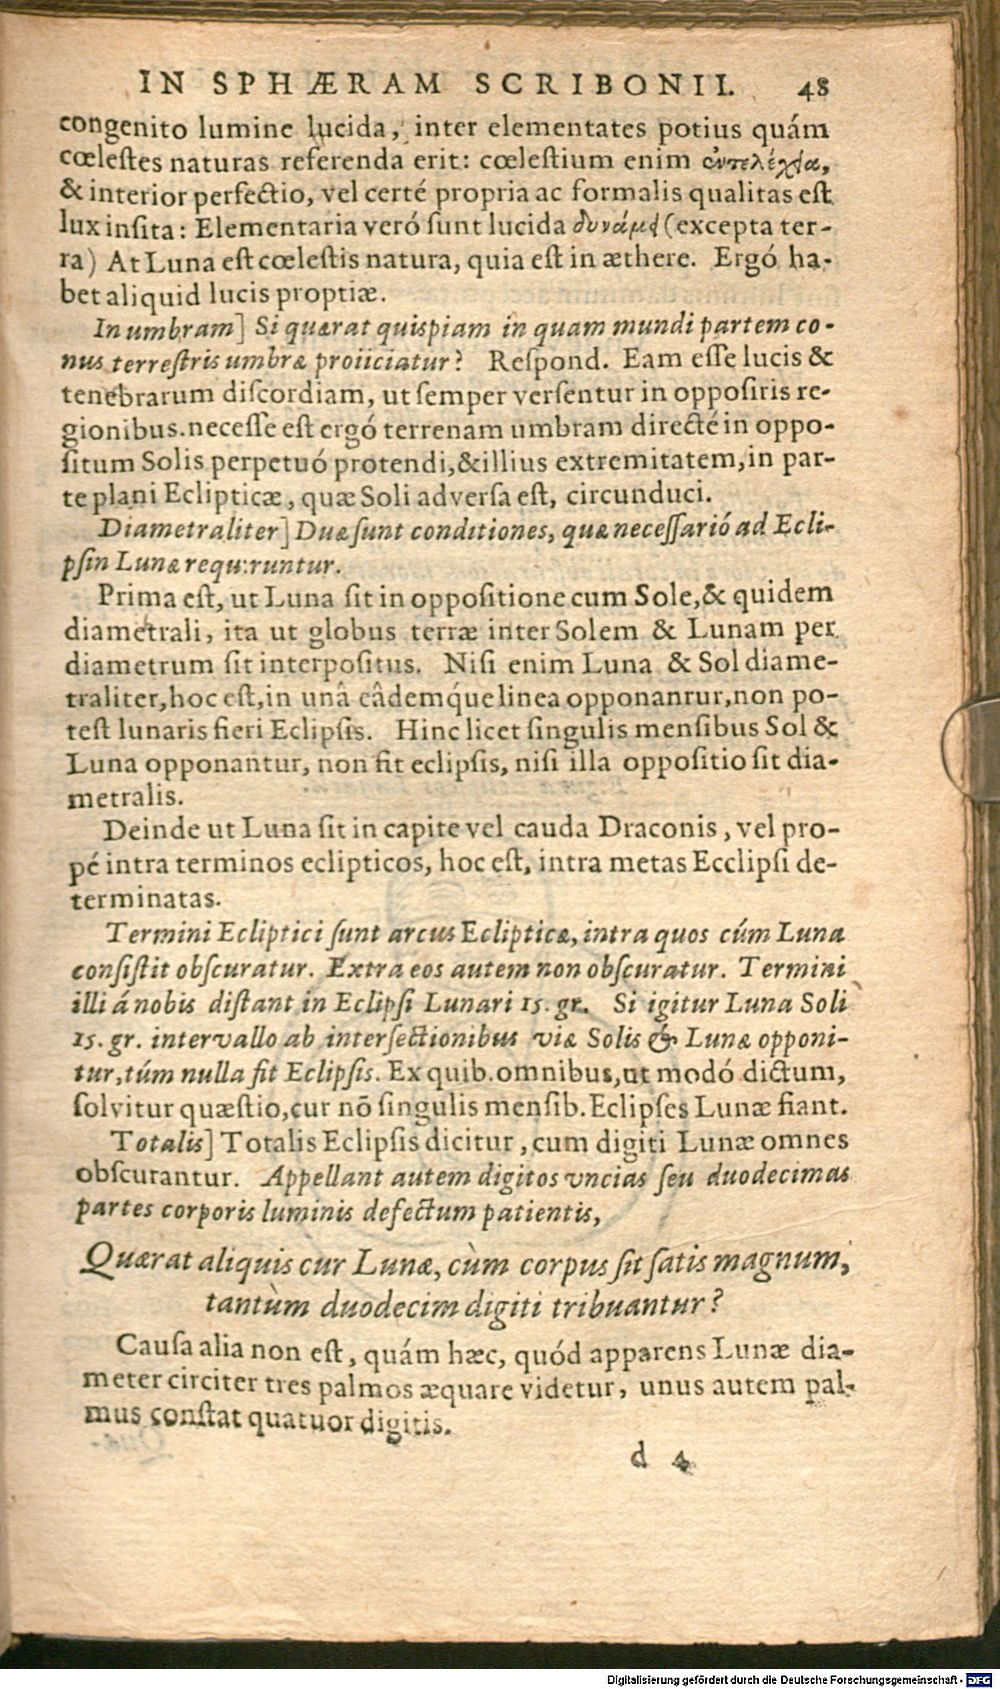 IN SPHÆRAM SCRIBONII. 48
congenito lumine lucida, inter elementates potius quám
cœlestes naturas referenda erit: cœlestium enim ἐντελέχεια,
& interior perfectio, vel certé propria ac formalis qualitas est
lux insita: Elementaria veró sunt lucida δυνάμει (excepta ter-
ra) At Luna est cœlestis natura, quia est in æthere. Ergó ha-
bet aliquid lucis proptiæ.
In umbram] Si quærat quispiam in quam mundi partem co-
nus terrestris umbræ proiiciatur? Respond. Eam esse lucis &
tenebrarum discordiam, ut semper versentur in opposiris re-
gionibus. necesse est ergó terrenam umbram directé in oppo-
situm Solis perpetuó protendi, & illius extremitatem, in par-
te plani Eclipticæ, quæ Soli adversa est, circunduci.
Diametraliter] Duæ sunt conditiones, quæ necessarió ad Ecli-
psin Lunæ requ:runtur.
Prima est, ut Luna sit in oppositione cum Sole, & quidem
diametrali, ita ut globus terræ inter Solem & Lunam per
diametrum sit interpositus. Nisi enim Luna & Sol diame-
traliter, hoc est, in unâ eâdemq́ue linea opponanrur, non po-
test lunaris fieri Eclipsis. Hinc licet singulis mensibus Sol &
Luna opponantur, non fit eclipsis, nisi illa oppositio sit dia-
metralis.
Deinde ut Luna sit in capite vel cauda Draconis, vel pro-
pé intra terminos eclipticos, hoc est, intra metas Ecclipsi de-
terminatas.
Termini Ecliptici sunt arcus Eclipticæ, intra quos cúm Luna
consistit obscuratur. Extra eos autem non obscuratur. Termini
illi á nobis distant in Eclipsi Lunari 15. gr. Si igitur Luna Soli
15. gr. intervallo ab intersectionibus viæ Solis & Lunæ opponi-
tur, túm nulla fit Eclipsis. Ex quib. omnibus, ut modó dictum,
solvitur quæstio, cur nō singulis mensib. Eclipses Lunæ fiant.
Totalis] Totalis Eclipsis dicitur, cum digiti Lunæ omnes
obscurantur. Appellant autem digitos vncias seu duodecimas
partes corporis luminis defectum patientis,
Quærat aliquis cur Lunæ, cùm corpus sit satis magnum,
tantùm duodecim digiti tribuantur?
Causa alia non est, quám hæc, quód apparens Lunæ dia-
meter circiter tres palmos æquare videtur, unus autem pal-
mus constat quatuor digitis.
d 4
Digitalisierung gefördert durch die Deutsche Forschungsgemeinschaft - DFG